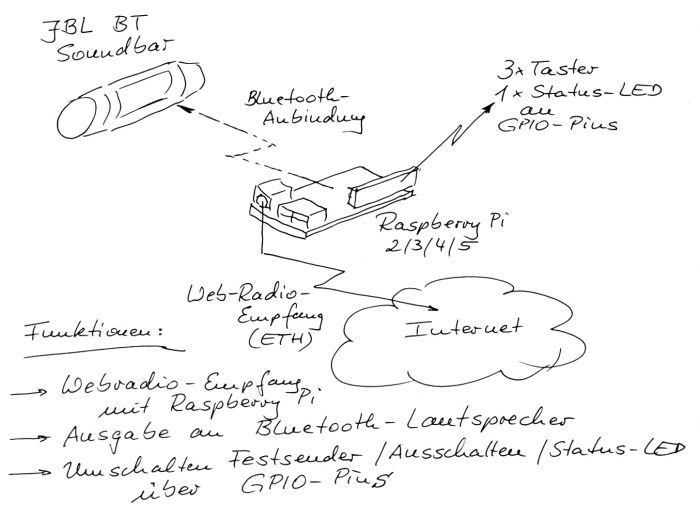 JBL BT
Soundbar
Bluetooth-
Anbindung
3x Taster
1x Status-LED
an
GPIO-Pins
Raspberry Pi
2/3/4/5
Web-Radio-
Empfang
(ETH)
Internet
Funktionen:
→ Webradio-Empfang
mit Raspberry Pi
→ Ausgabe an Bluetooth-Lautsprecher
→ Umschalten Festsender/Ausschalten/Status-LED
über GPIO-Pins